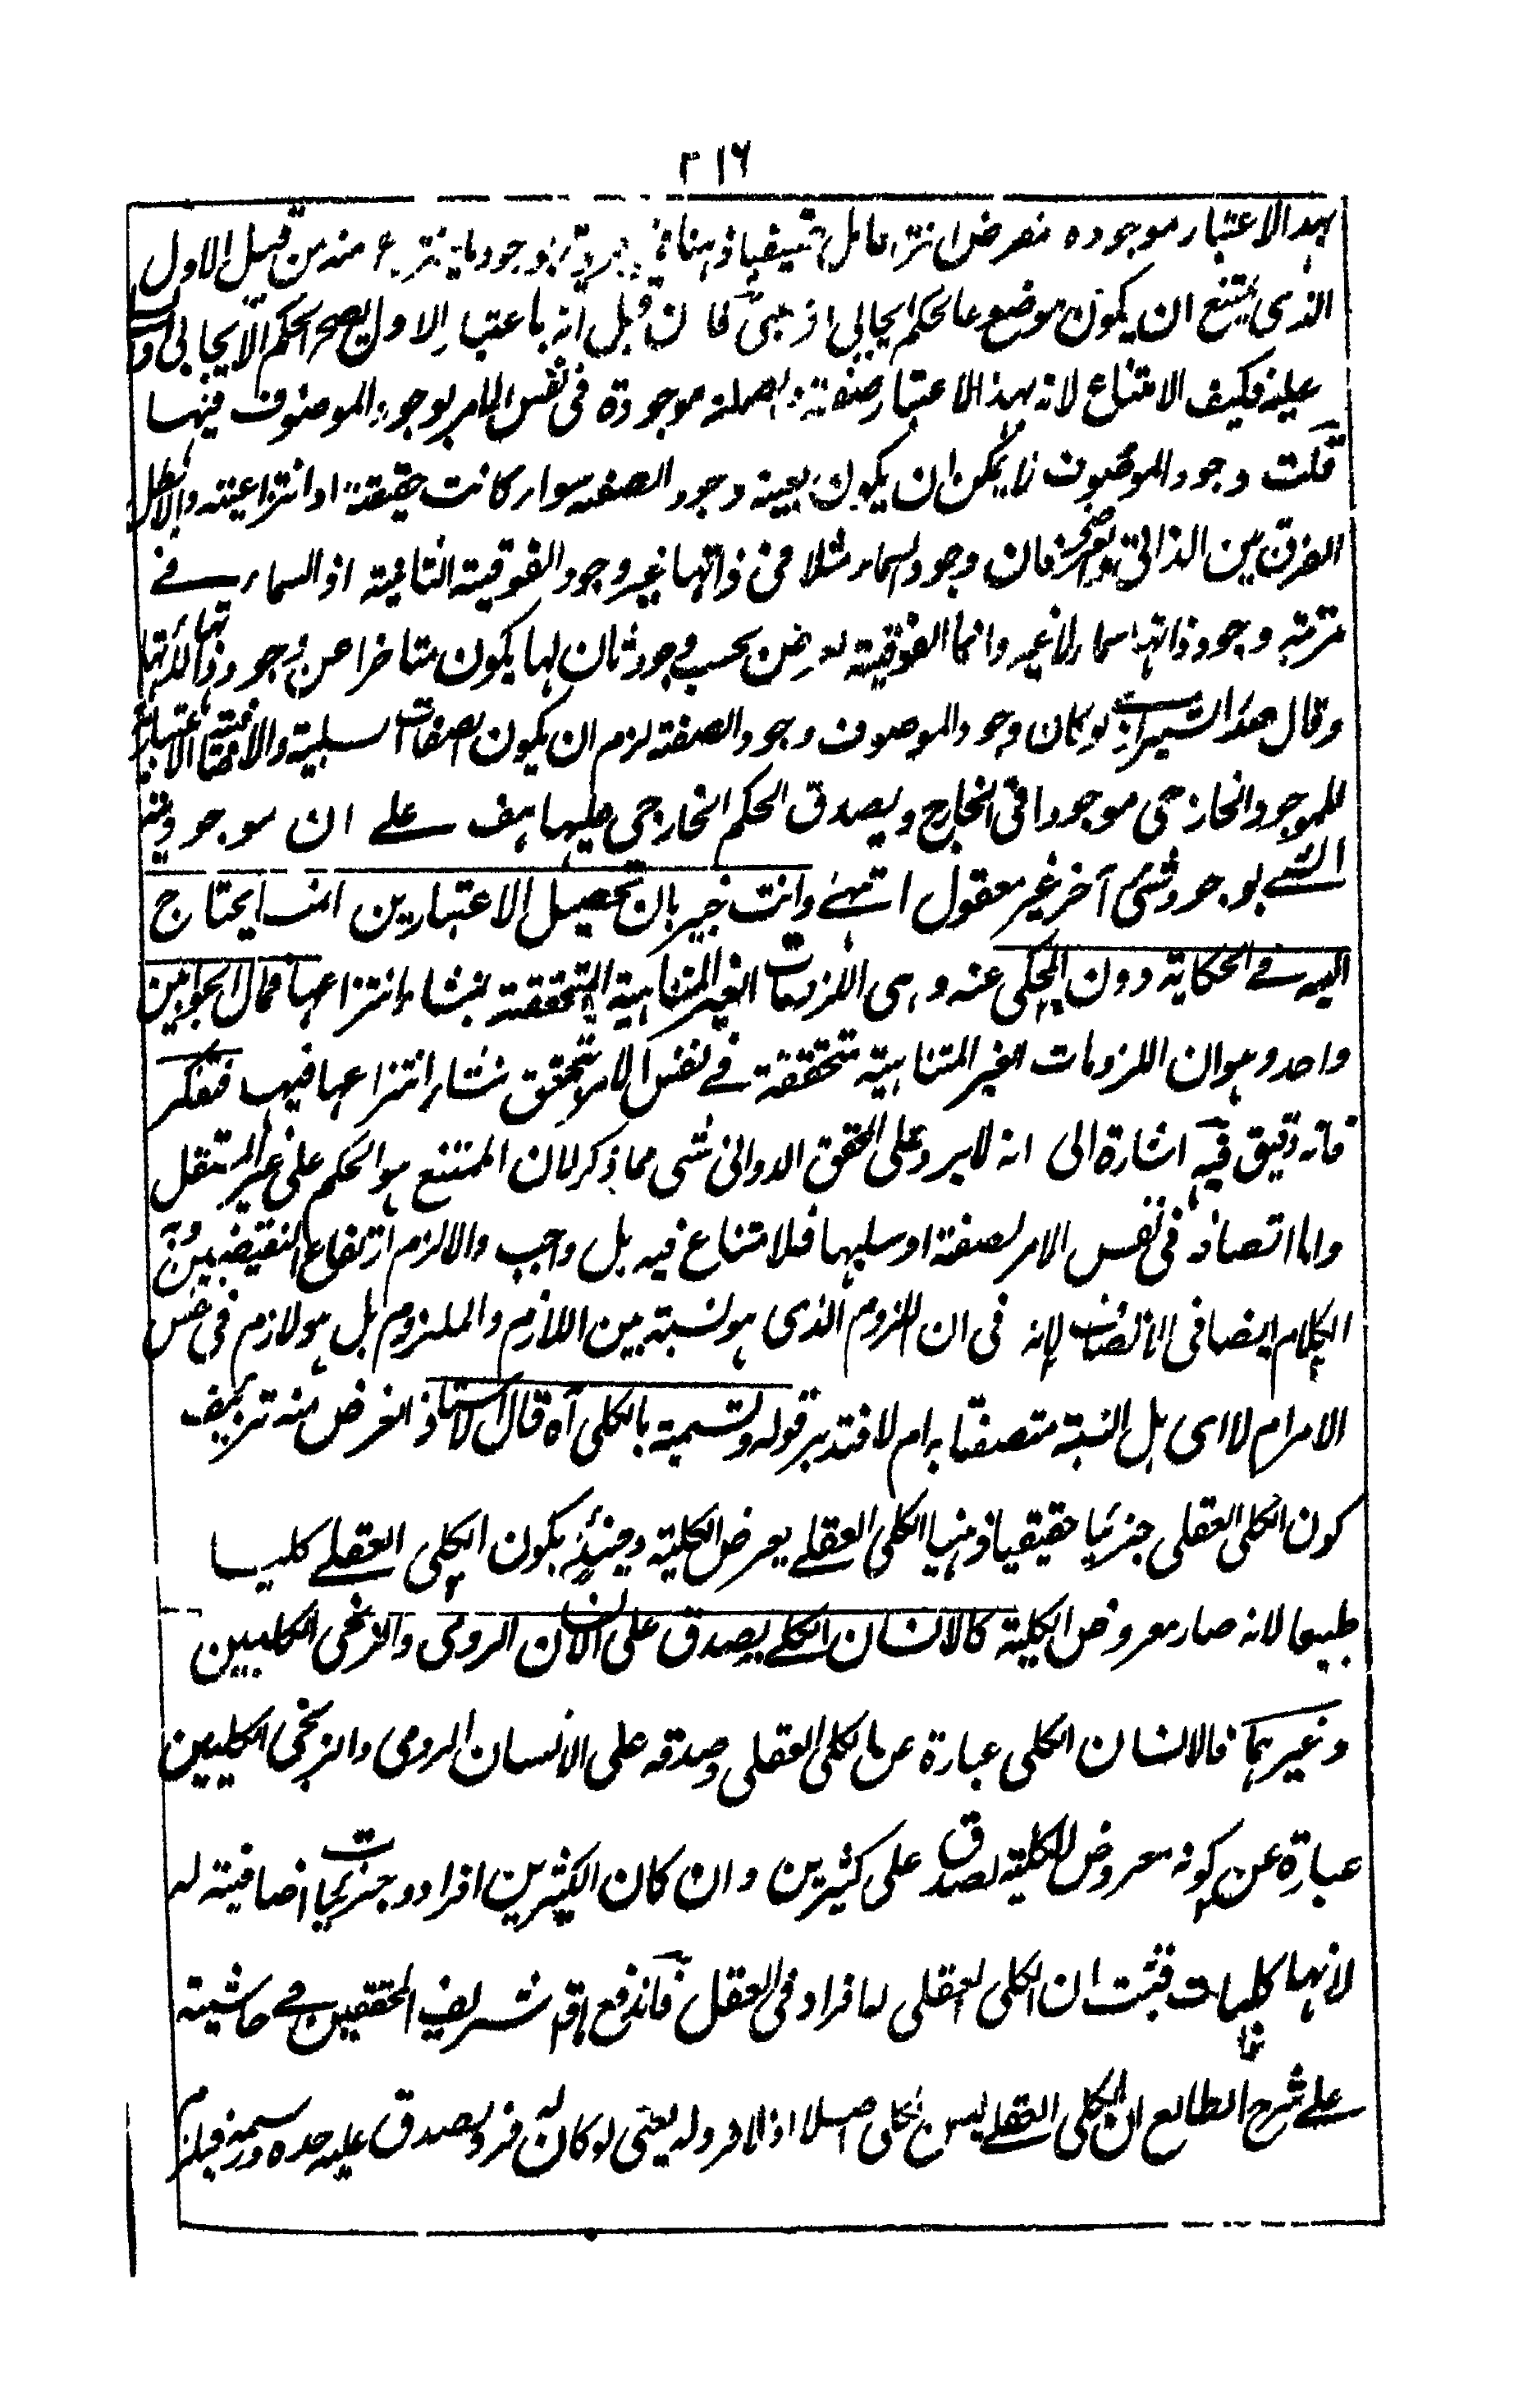 ٢١٦
بهذا الاعتبار موجوده بفرض انتزاعها بل هنا في وجود ما ينتزع منه من قبيل الاول
الذي يمتنع ان يكون موضوعا لحكم ايجابي او سلبي فان قيل انه باعتبار الاول يصح الحكم الايجابي
عليه فكيف الامتناع لانه بهذا الاعتبار صفة موجودة في نفس الامر بوجود الموصوف فيها
قلت وجود الموصوف لا يمكن ان يكون بعينه وجود الصفة سواء كانت حقيقة او انتزاعية والا بطل
الفرق بين الذاتي والعرضي فان وجود السماء مثلا في ذاتها غير وجود الفوقية الثانية اذ السماء في
مرتبة وجود ذاتها سماء لا غير وانما الفوقية لعرض بحسب وجود ثان لها يكون متاخرا من وجود ذاتها
وقال صدر الشيرازي لو كان وجود الموصوف وجود الصفة لزم ان يكون الصفات السلبية والاضافية الاعتبارية
للموجود الخارجي موجودا في الخارج ويصدق الحكم الخارجي عليها هف على ان موجودية
الشئ بوجود شئ آخر غير معقول انتهى وانت خبير بان تحصيل الاعتبارين انما يحتاج
اليه في الحكاية دون المحكي عنه وهي اللزومات الغير المتناهية المتحققة بمنشاء انتزاعها فمال الجوابين
واحد وهو ان اللزومات الغير المتناهية متحققة في نفس الامر بتحقق منشاء انتزاعها فيها فتفكر
فانه دقيق فيه اشارة الى انه لا يرد على المحقق الدواني شئ مما ذكر لان الممتنع هو الحكم على غير المستقل
واما اتصافه في نفس الامر لصفة او سلبها فلا امتناع فيه بل واجب والا لزم ارتفاع النقيضين
الكلام ايضا في الاتصاف لانه في ان اللزوم الذي هو نسبة بين اللازم والملزوم بل هو لازم في نفس
الامر ام لا اى بل النسبة متصفة به ام لا فتدبر قوله وتسمية بالكلى آه قال الاستاذ الغرض منه تزييف
كون الكلى العقلى جزئيا حقيقيا ذهنيا الكلى العقلى يعرض الكلية وحينئذ يكون الكلى العقلى كليا
طبيعيا لانه صار معروض الكلية كالانسان الكلى يصدق على الانسان الرومى والزنجى الكليين
وغيرهما فالانسان الكلى عبارة عن الكلى العقلى وصدقه على الانسان الرومى والزنجى الكليين
عبارة عن كونه معروض الكلية لصدق على كثيرين وان كان الكثيرين افراد وجزئيات اضافية له
لانها كليات فثبت ان الكلى العقلى لها افراد فى العقل فاندفع ما قال شريف المحققين في حاشيته
على شرح المطالع ان الكلى العقلى ليس بكلى اصلا اذ لا فرد له يعنى لو كان له فرد لصدق عليه حده ورسمه فيلزم